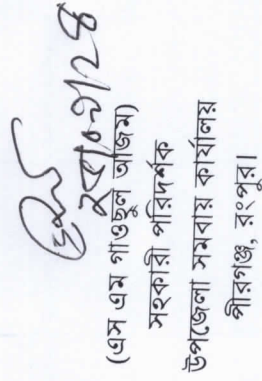 (এস এম গাওছুল আজম)
সহকারী পরিদর্শক
উপজেলা সমবায় কার্যালয়
পীরগঞ্জ, রংপুর।